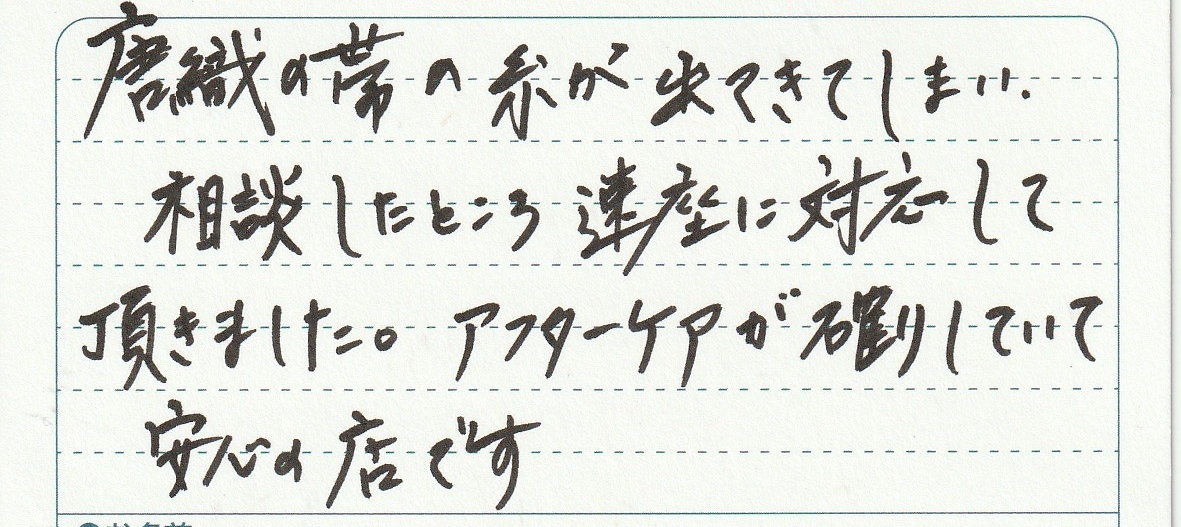 唐織の帯の糸が出てきてしまい.
相談したところ速座に対応して
頂きました。アフターケアが確りしていて
安心の店です